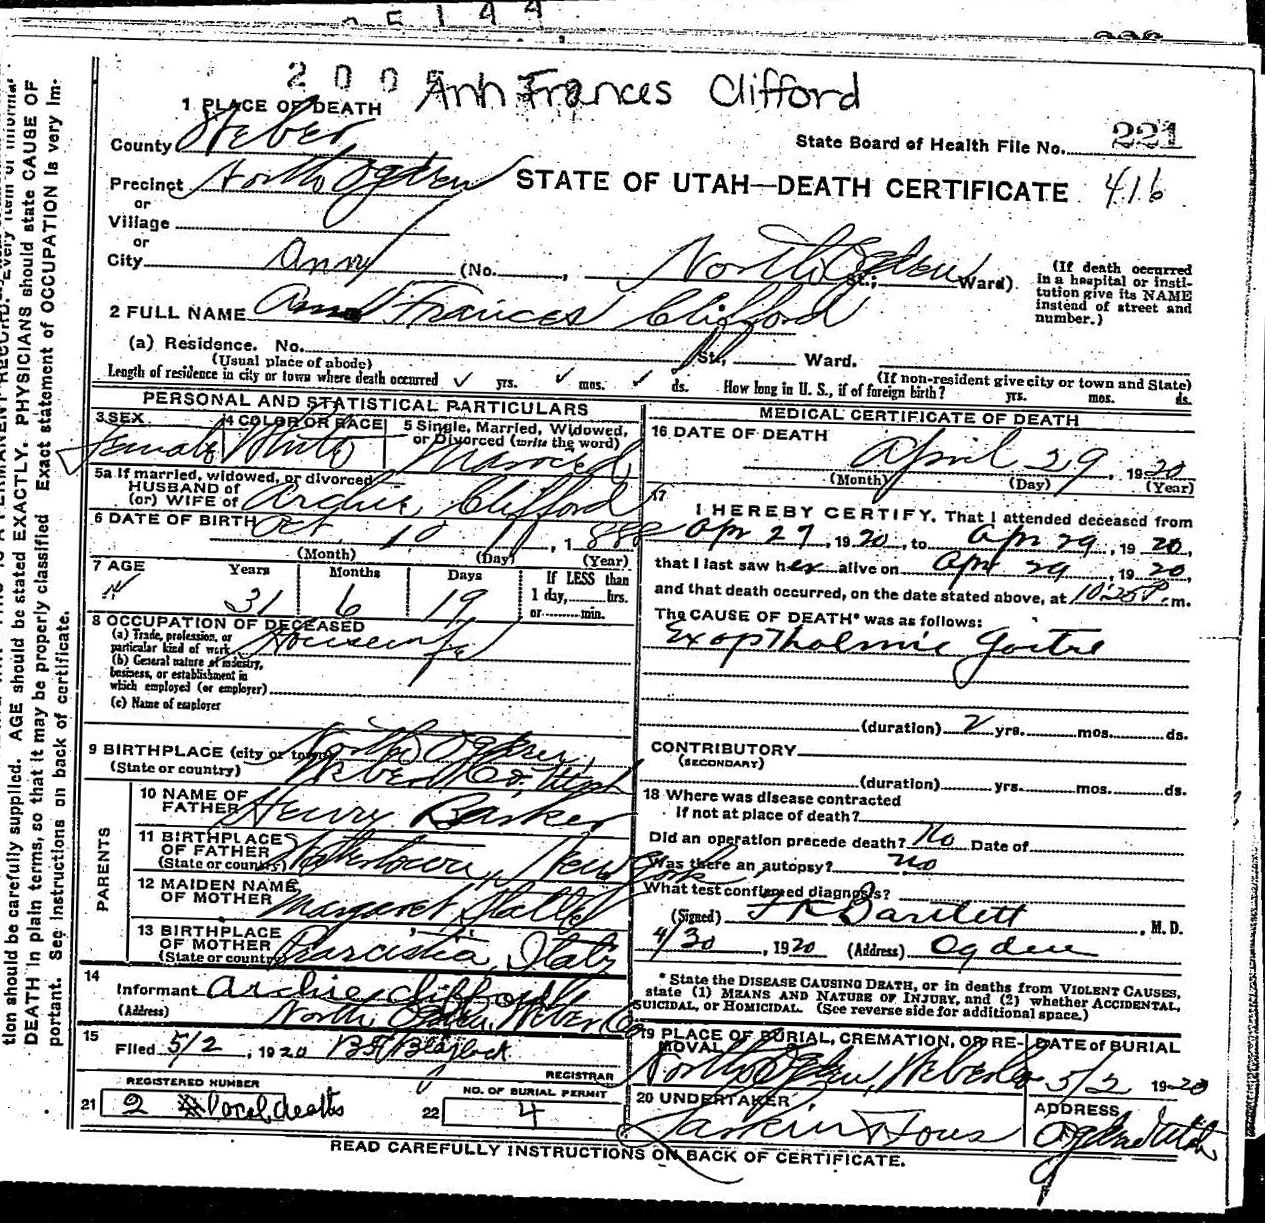 2005
Ann Frances Clifford
1 PLACE OF DEATH
State Board of Health File No. 221
County Weber
Precinct North Ogden
STATE OF UTAH—DEATH CERTIFICATE 416
or
Village
or
City (No. , North Ogden St.; Ward).
Anny
(If death occurred in a hospital or institution give its NAME instead of street and number.)
2 FULL NAME Ann Frances Clifford
(a) Residence. No. St., Ward.
(Usual place of abode) (If non-resident give city or town and State)
Length of residence in city or town where death occurred ✓ yrs. ✓ mos. ✓ ds. How long in U. S., if of foreign birth? yrs. mos. ds.
PERSONAL AND STATISTICAL PARTICULARS
3 SEX Female
4 COLOR OR RACE White
5 Single, Married, Widowed, or Divorced (write the word) Married
5a If married, widowed, or divorced
HUSBAND of
(or) WIFE of Archie Clifford
6 DATE OF BIRTH Oct. 10, 1888
(Month) (Day) (Year)
7 AGE Years Months Days If LESS than
31 6 19 1 day, hrs.
or min.
8 OCCUPATION OF DECEASED
(a) Trade, profession, or particular kind of work Housewife
(b) General nature of industry, business, or establishment in which employed (or employer)
(c) Name of employer
9 BIRTHPLACE (city or town) North Ogden
(State or country) Weber Co. Utah
PARENTS
10 NAME OF FATHER Henry Barker
11 BIRTHPLACE OF FATHER (State or country) New York
12 MAIDEN NAME OF MOTHER Margaret
13 BIRTHPLACE OF MOTHER (State or country) Italy
14 Informant Archie Clifford
(Address) North Ogden, Weber Co
15 Filed 5/2, 1920 Blaylock
REGISTRAR
REGISTERED NUMBER
21 2 local deaths
NO. OF BURIAL PERMIT
22 4
MEDICAL CERTIFICATE OF DEATH
16 DATE OF DEATH
April 29, 1920
(Month) (Day) (Year)
17
I HEREBY CERTIFY, That I attended deceased from
Apr 27, 1920, to Apr 29, 1920,
that I last saw her alive on Apr 29, 1920,
and that death occurred, on the date stated above, at 10:25 P. m.
The CAUSE OF DEATH* was as follows:
Exopthalmic Goitre
(duration) 2 yrs. mos. ds.
CONTRIBUTORY
(SECONDARY)
(duration) yrs. mos. ds.
18 Where was disease contracted
if not at place of death?
Did an operation precede death? No Date of
Was there an autopsy? no
What test confirmed diagnosis?
(Signed) Bartlett, M. D.
4/30, 1920 (Address) Ogden
* State the DISEASE CAUSING DEATH, or in deaths from VIOLENT CAUSES,
state (1) MEANS AND NATURE OF INJURY, and (2) whether ACCIDENTAL,
SUICIDAL, OR HOMICIDAL. (See reverse side for additional space.)
19 PLACE OF BURIAL, CREMATION, OR REMOVAL
North Ogden, Weber Co
DATE of BURIAL
5/2 1920
20 UNDERTAKER
Larkin & Sons
ADDRESS
Ogden Utah
READ CAREFULLY INSTRUCTIONS ON BACK OF CERTIFICATE.
tion should be carefully supplied. AGE should be stated EXACTLY. PHYSICIANS should state CAUSE OF
DEATH in plain terms, so that it may be properly classified. Exact statement of OCCUPATION is very im-
portant. See instructions on back of certificate.